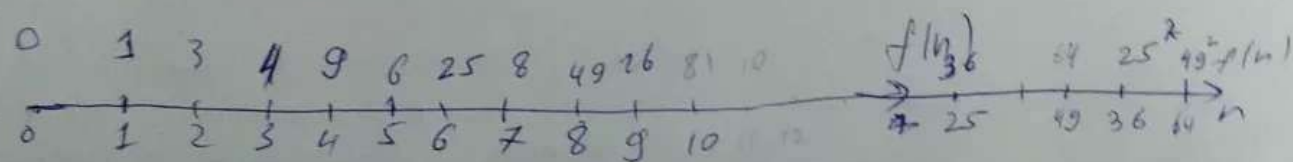 0 1 3 4 9 6 25 8 49 26 81 10 f(n) 36 64 25² 49² f(n)
0 1 2 3 4 5 6 7 8 9 10 11 12 25 49 36 64 n